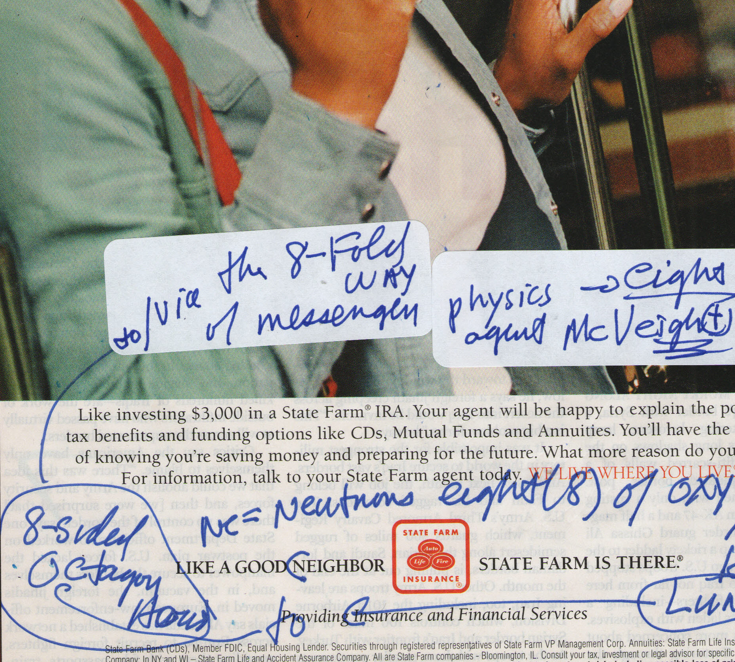 the 8-Fold
to/via WAY
of messenger
physics → eight
agent McVeigh(t)
Like investing $3,000 in a State Farm® IRA. Your agent will be happy to explain the
tax benefits and funding options like CDs, Mutual Funds and Annuities. You'll have the
of knowing you're saving money and preparing for the future. What more reason do you
For information, talk to your State Farm agent today. WE LIVE WHERE YOU LIVE
Ne = Neutrons eight (8) of oxy
8-sided
Octagon
STATE FARM
Auto
Life Fire
INSURANCE®
LIKE A GOOD NEIGHBOR
STATE FARM IS THERE.®
to
Providing Insurance and Financial Services
State Farm Bank (CDs), Member FDIC, Equal Housing Lender. Securities through registered representatives of State Farm VP Management Corp. Annuities: State Farm Life
Company: In NY and WI – State Farm Life and Accident Assurance Company. All are State Farm companies – Bloomington, IL. Consult your tax, investment or legal advisor for